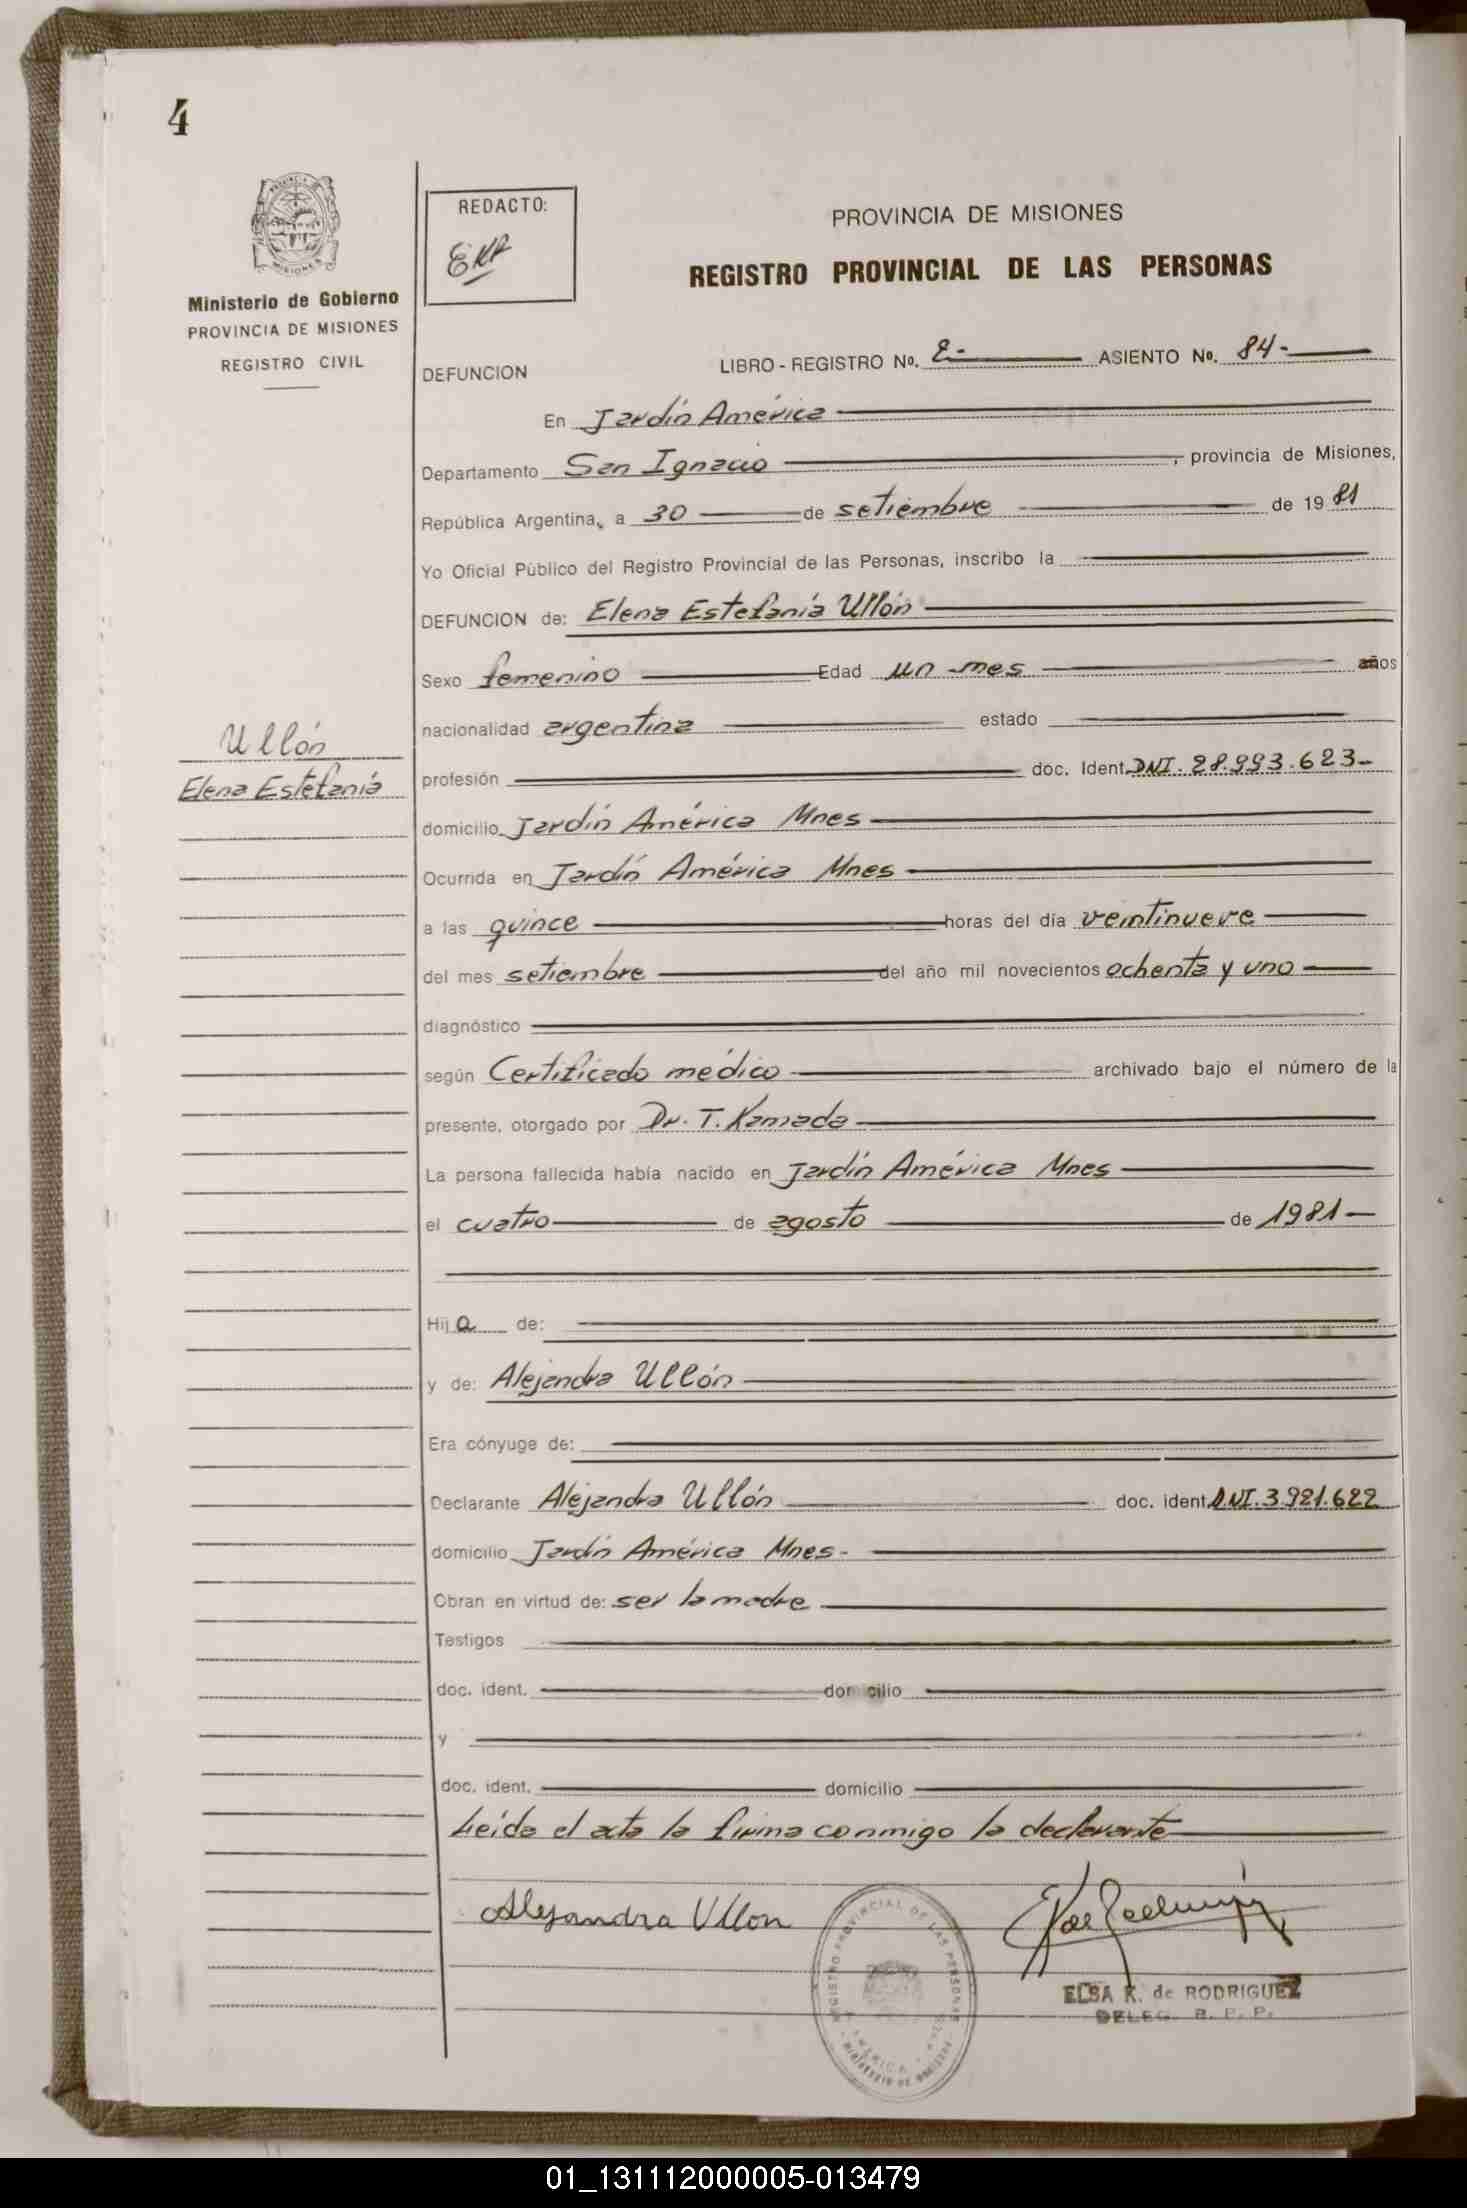 4
Ministerio de Gobierno
PROVINCIA DE MISIONES
REGISTRO CIVIL
REDACTO:
EKR
PROVINCIA DE MISIONES
REGISTRO PROVINCIAL DE LAS PERSONAS
DEFUNCION LIBRO - REGISTRO Nº. 2- ASIENTO Nº. 84-
En Jardín América
Departamento San Ignacio, provincia de Misiones,
República Argentina, a 30 de setiembre de 1981
Yo Oficial Público del Registro Provincial de las Personas, inscribo la
DEFUNCION de: Elena Estefanía Ullón
Sexo femenino Edad un mes años
nacionalidad argentina estado
Ullón
Elena Estefanía
profesión doc. Ident. DNI. 28.993.623-
domicilio Jardín América Mnes
Ocurrida en Jardín América Mnes
a las quince horas del día veintinueve
del mes setiembre del año mil novecientos ochenta y uno
diagnóstico
según Certificado médico archivado bajo el número de la
presente, otorgado por Dr. T. Kamada
La persona fallecida había nacido en Jardín América Mnes
el cuatro de agosto de 1981
Hija de:
y de: Alejandra Ullón
Era cónyuge de:
Declarante Alejandra Ullón doc. ident. DNI. 3.921.622
domicilio Jardín América Mnes-
Obran en virtud de: ser la madre
Testigos
doc. ident. domicilio
y
doc. ident. domicilio
Leída el acta la firma conmigo la declarante
Alejandra Ullon
REGISTRO PROVINCIAL DE LAS PERSONAS
ELSA K. de RODRIGUEZ
DELEG. R. P. P.
01_131112000005-013479